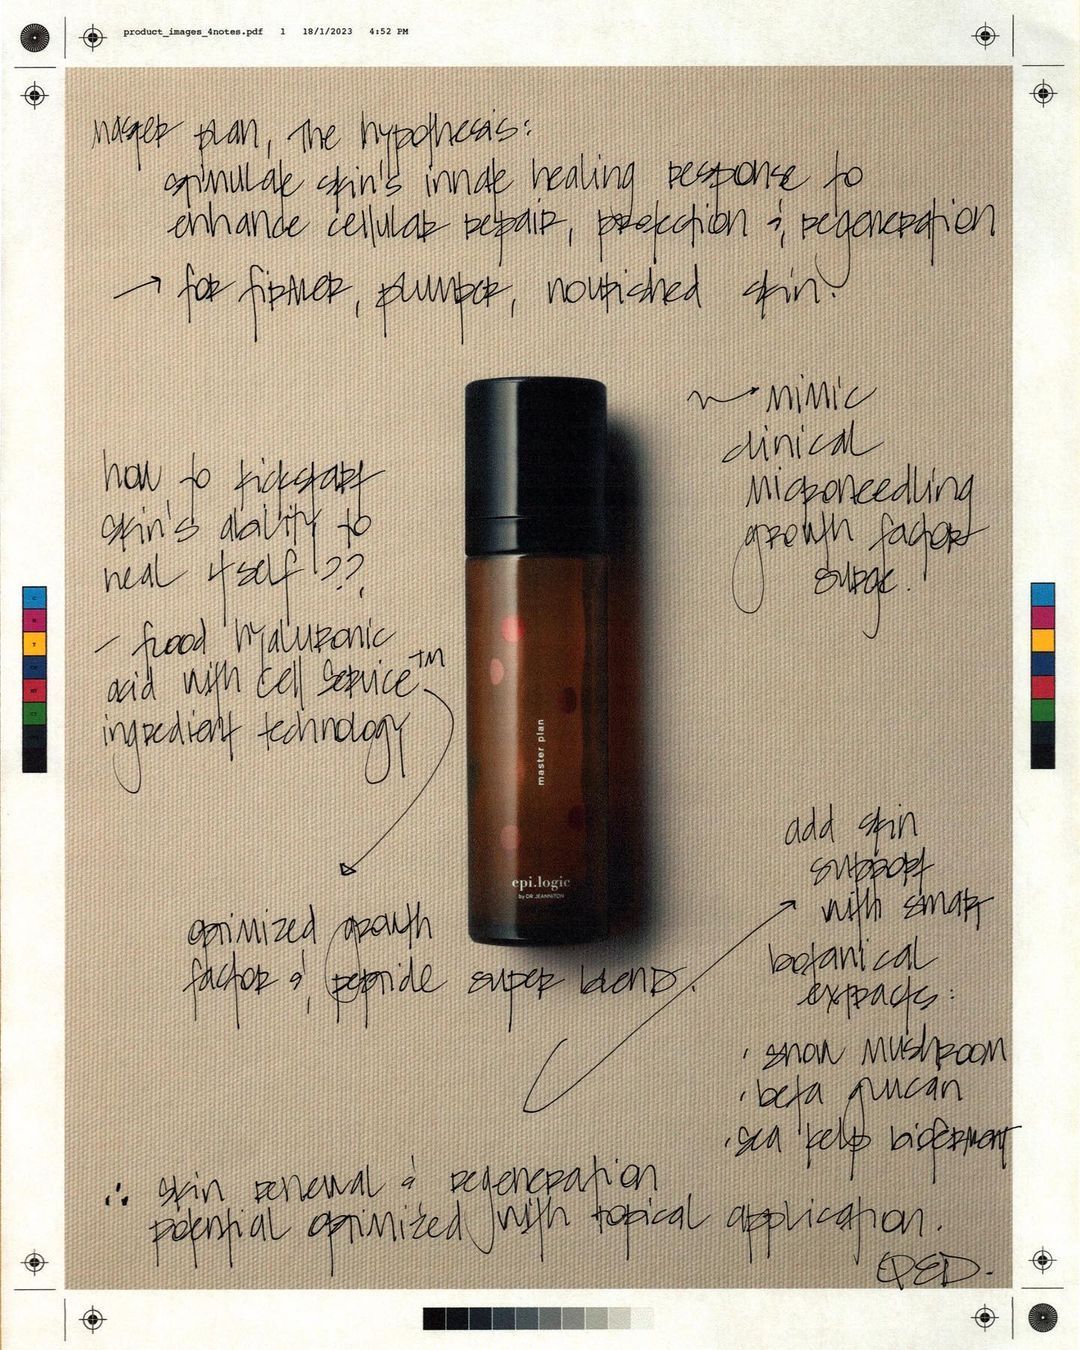 product_images_4notes.pdf 1 18/1/2023 4:52 PM
master plan, the hypothesis:
stimulate skin's innate healing response to
enhance cellular repair, protection & regeneration
→ for firmer, plumper, nourished skin.
→ mimic
clinical
microneedling
growth factor
surge.
how to kickstart
skin's ability to
heal itself ??
- flood hyaluronic
acid with Cell Service™
ingredient technology
optimized growth
factor & peptide super blend.
master plan
epi.logic
by DR JEANNITON
add skin
support
with smart
botanical
extracts:
· snow mushroom
· beta glucan
· sea kelp bioferment
∴ skin renewal & regeneration
potential optimized with topical application.
QED.